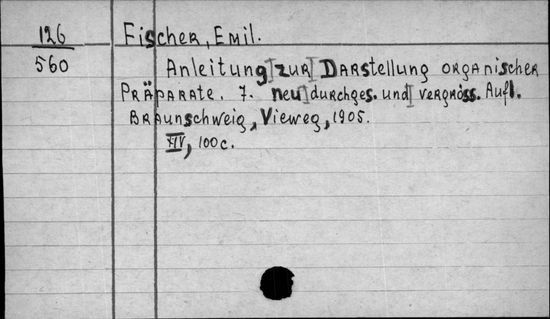 126
560
Fischer, Emil.
Anleitung zur Darstellung organischer
Präparate. 7. neu durchges. und vergröss. Aufl.
Braunschweig, Vieweg, 1905.
XIV, 100 c.